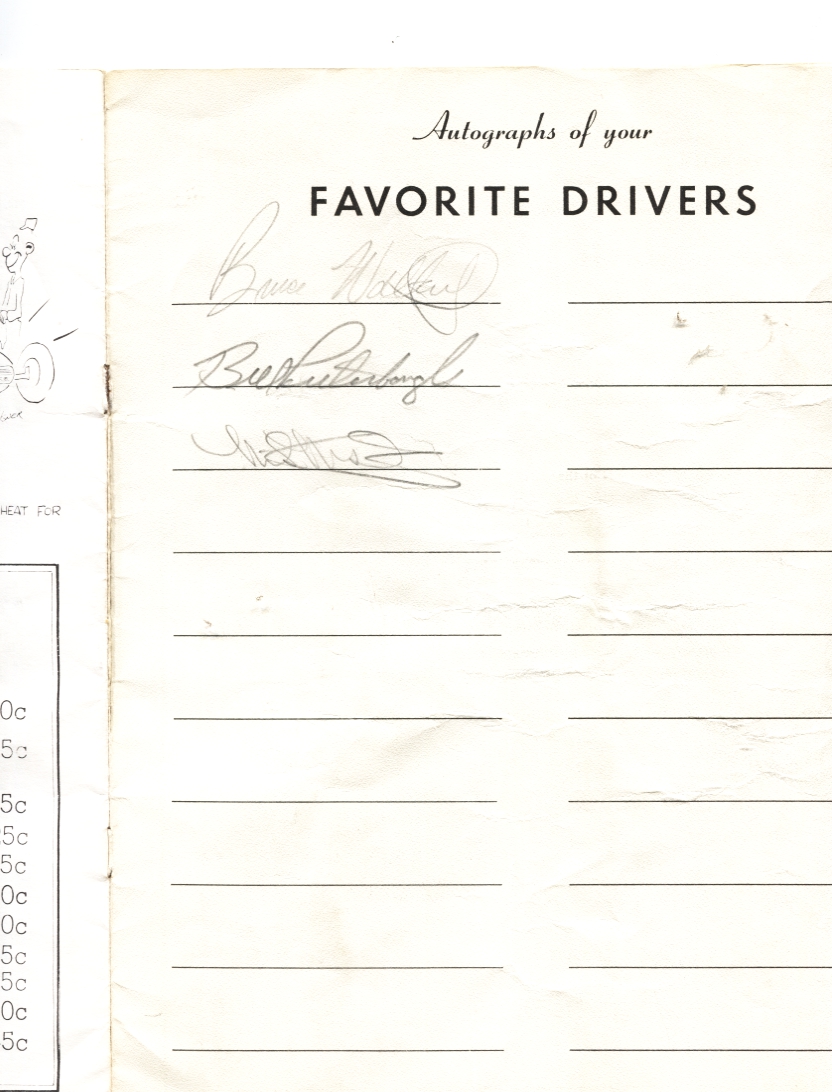 Autographs of your
FAVORITE DRIVERS
Bruce
Bill Puterbaugh
HEAT FOR
0c
5c
5c
5c
5c
0c
0c
5c
5c
0c
5c